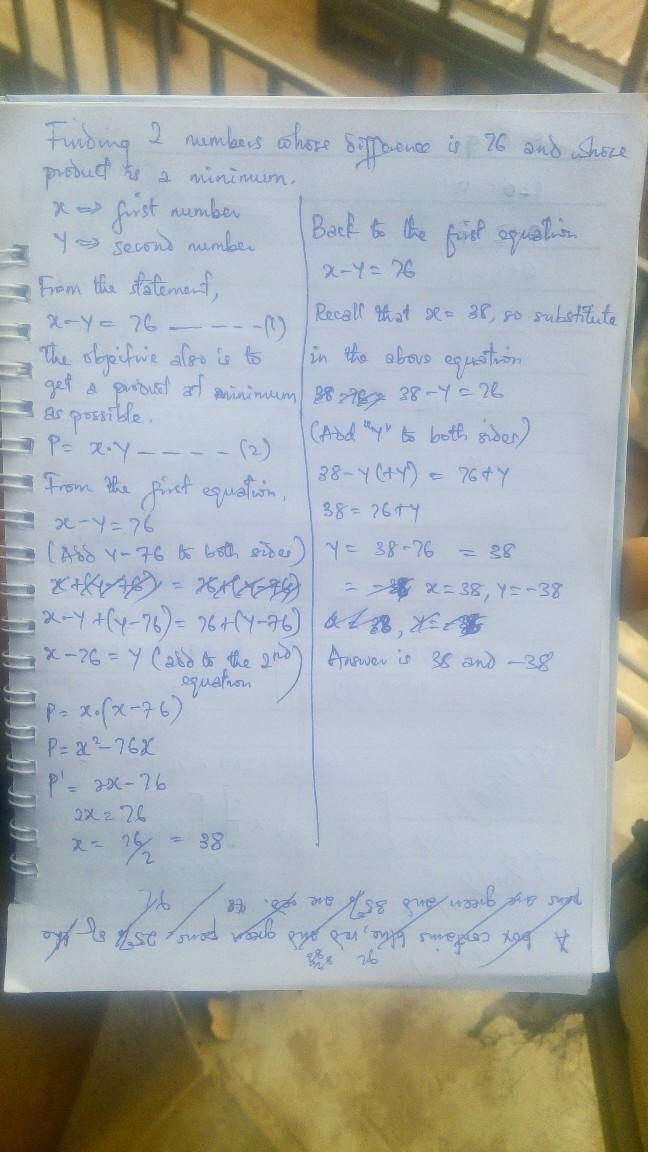 Finding 2 numbers whose difference is 76 and whose
product is a minimum.
x => first number
Y => second number
From the statement,
x-Y = 76 ————(1)
The objective also is to
get a product of minimum
as possible.
P= x·Y ———— (2)
From the first equation,
x-Y=76
(Add Y-76 to both sides)
x+(Y-76) = 76+(Y-76)
x-Y+(Y-76)= 76+(Y-76)
x-76=Y (add to the 2nd
equation)
P= x·(x-76)
P= x²-76x
P' = 2x-76
2x=76
x= 76/2 = 38
Back to the first equation
x-Y=76
Recall that x= 38, so substitute
in the above equation
38-Y=76
(Add "Y" to both sides)
38-Y(+Y) = 76+Y
38=76+Y
Y= 38-76 = 38
= x=38, Y=-38
Answer is 38 and -38
A box contains blue, red and green pens. 25% of the
pens are green and 35% are red.